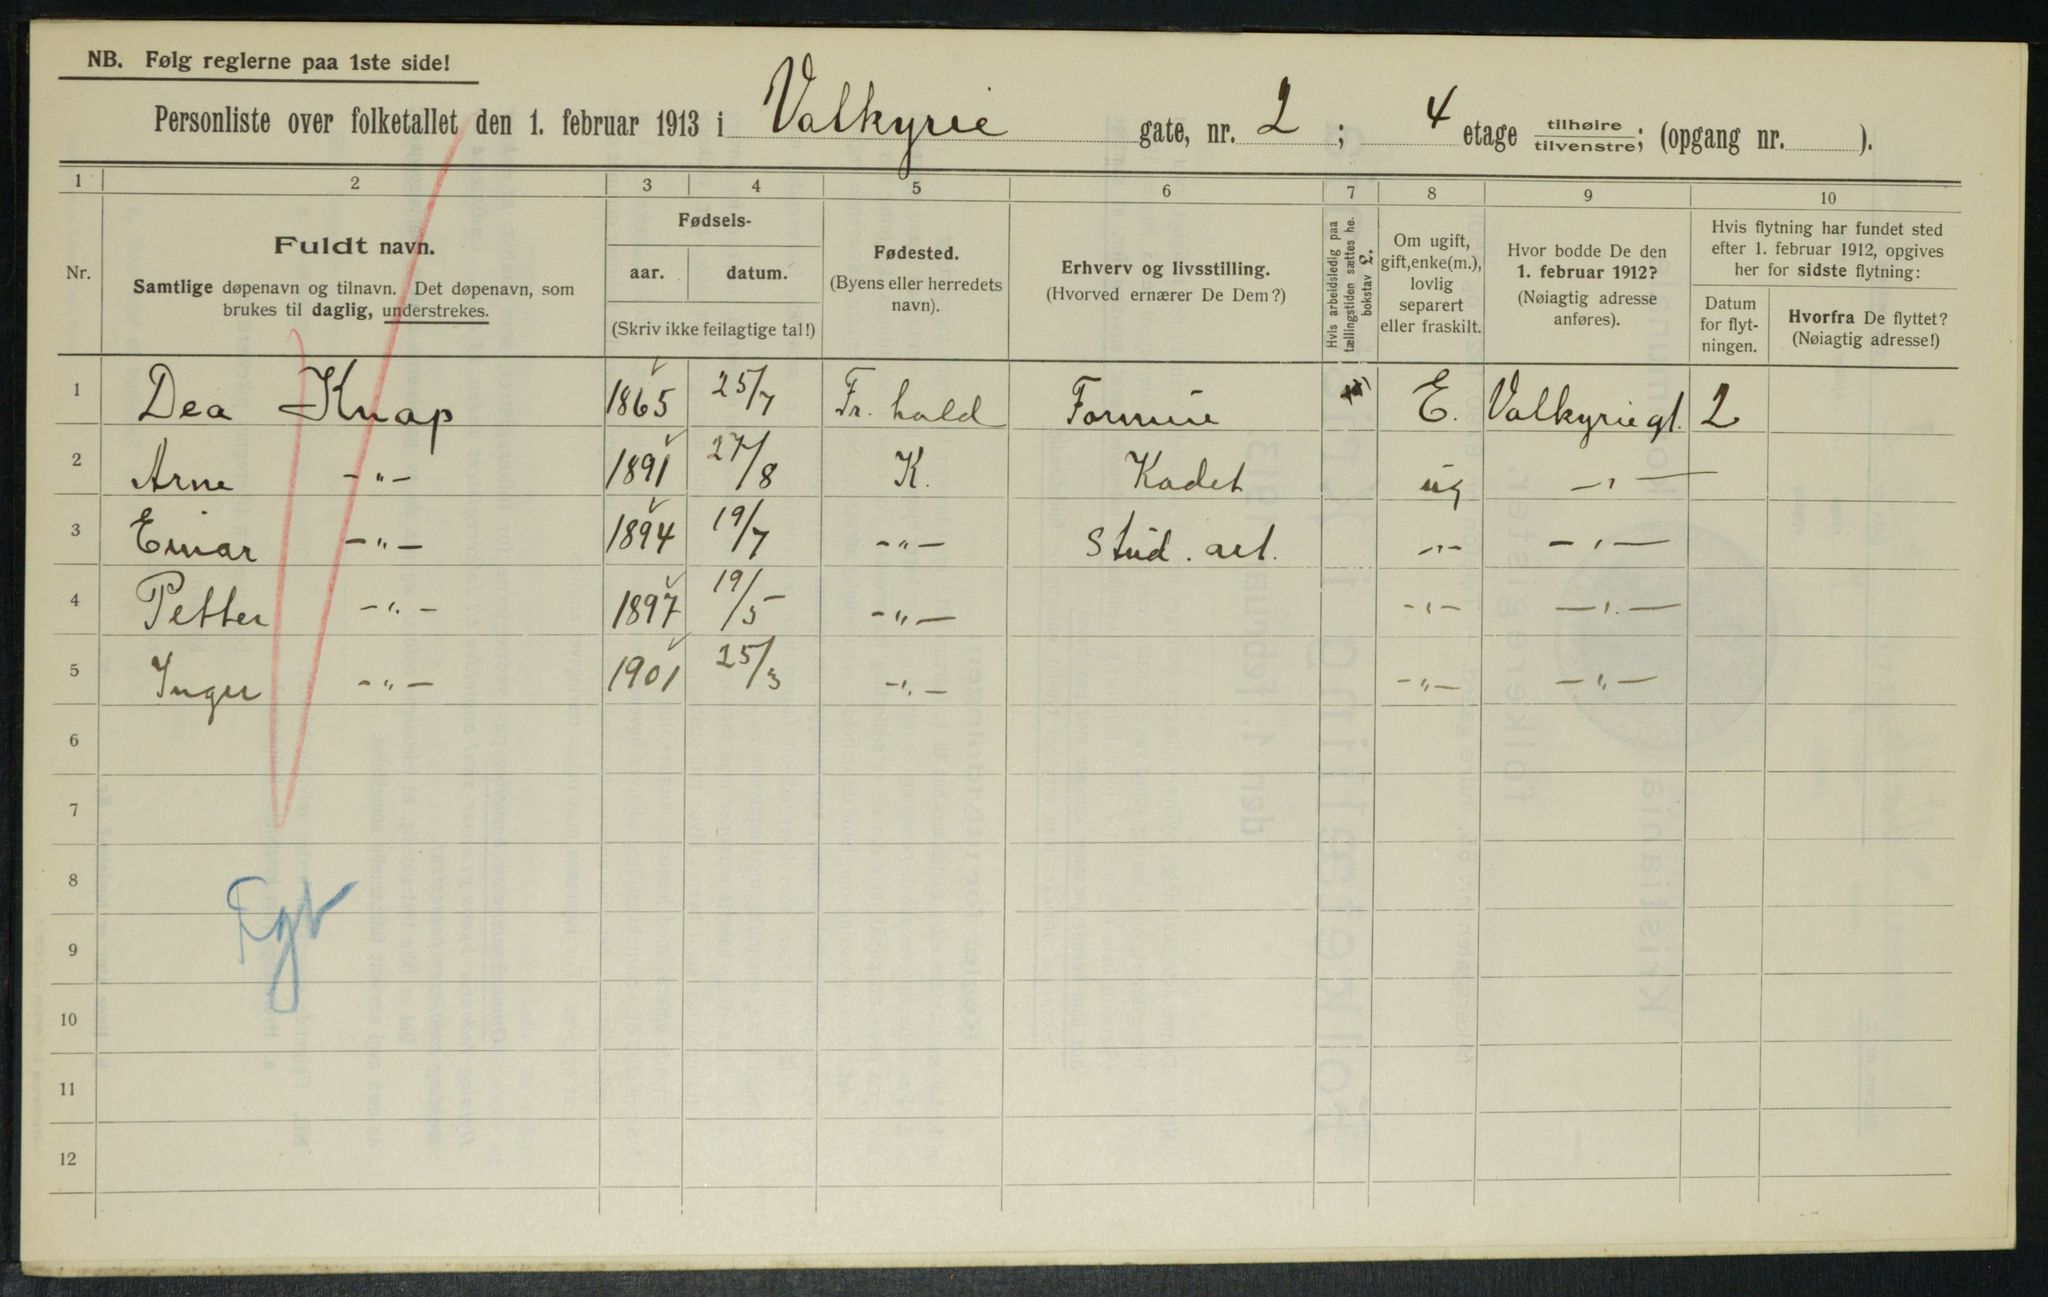 NB. Følg reglerne paa 1ste side!
Personliste over folketallet den 1. februar 1913 i Valkyrie gate, nr. 2; 4 etage tilhøire/tilvenstre; (opgang nr. ).
1 2 3 4 5 6 7 8 9 10
Nr.
Fuldt navn.
Samtlige døpenavn og tilnavn. Det døpenavn, som
brukes til daglig, understrekes.
Fødsels-
aar. datum.
(Skriv ikke feilagtige tal!)
Fødested.
(Byens eller herredets
navn).
Erhverv og livsstilling.
(Hvorved ernærer De Dem?)
Hvis arbeidsledig paa
tællingstiden sættes he.
bokstav L.
Om ugift,
gift, enke(m.),
lovlig
separert
eller fraskilt.
Hvor bodde De den
1. februar 1912?
(Nøiagtig adresse
anføres).
Hvis flytning har fundet sted
efter 1. februar 1912, opgives
her for sidste flytning:
Datum
for flyt-
ningen.
Hvorfra De flyttet?
(Nøiagtig adresse!)
1 Dea Knap 1865 25/7 Fr. hald Formue E. Valkyriegt. 2
2 Arne -"- 1891 27/8 K. Kadet ug -"-
3 Einar -"- 1894 19/7 -"- Stud. art. -"- -"-
4 Petter -"- 1897 19/5 -"- -"- -"-
5 Inger -"- 1901 25/3 -"- -"- -"-
6
7
8
9
10
11
12